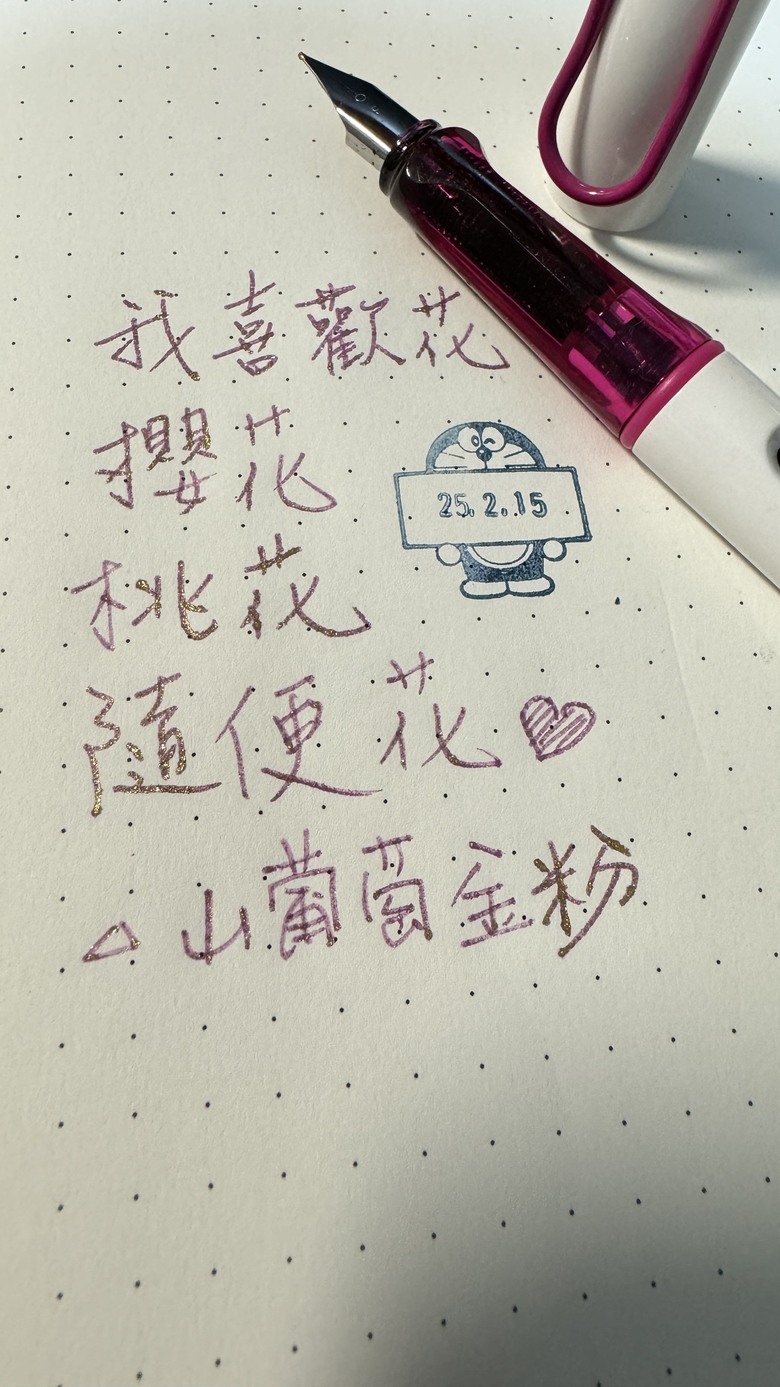 我喜歡花
櫻花
25.2.15
桃花
隨便花♡
△山葡萄金粉